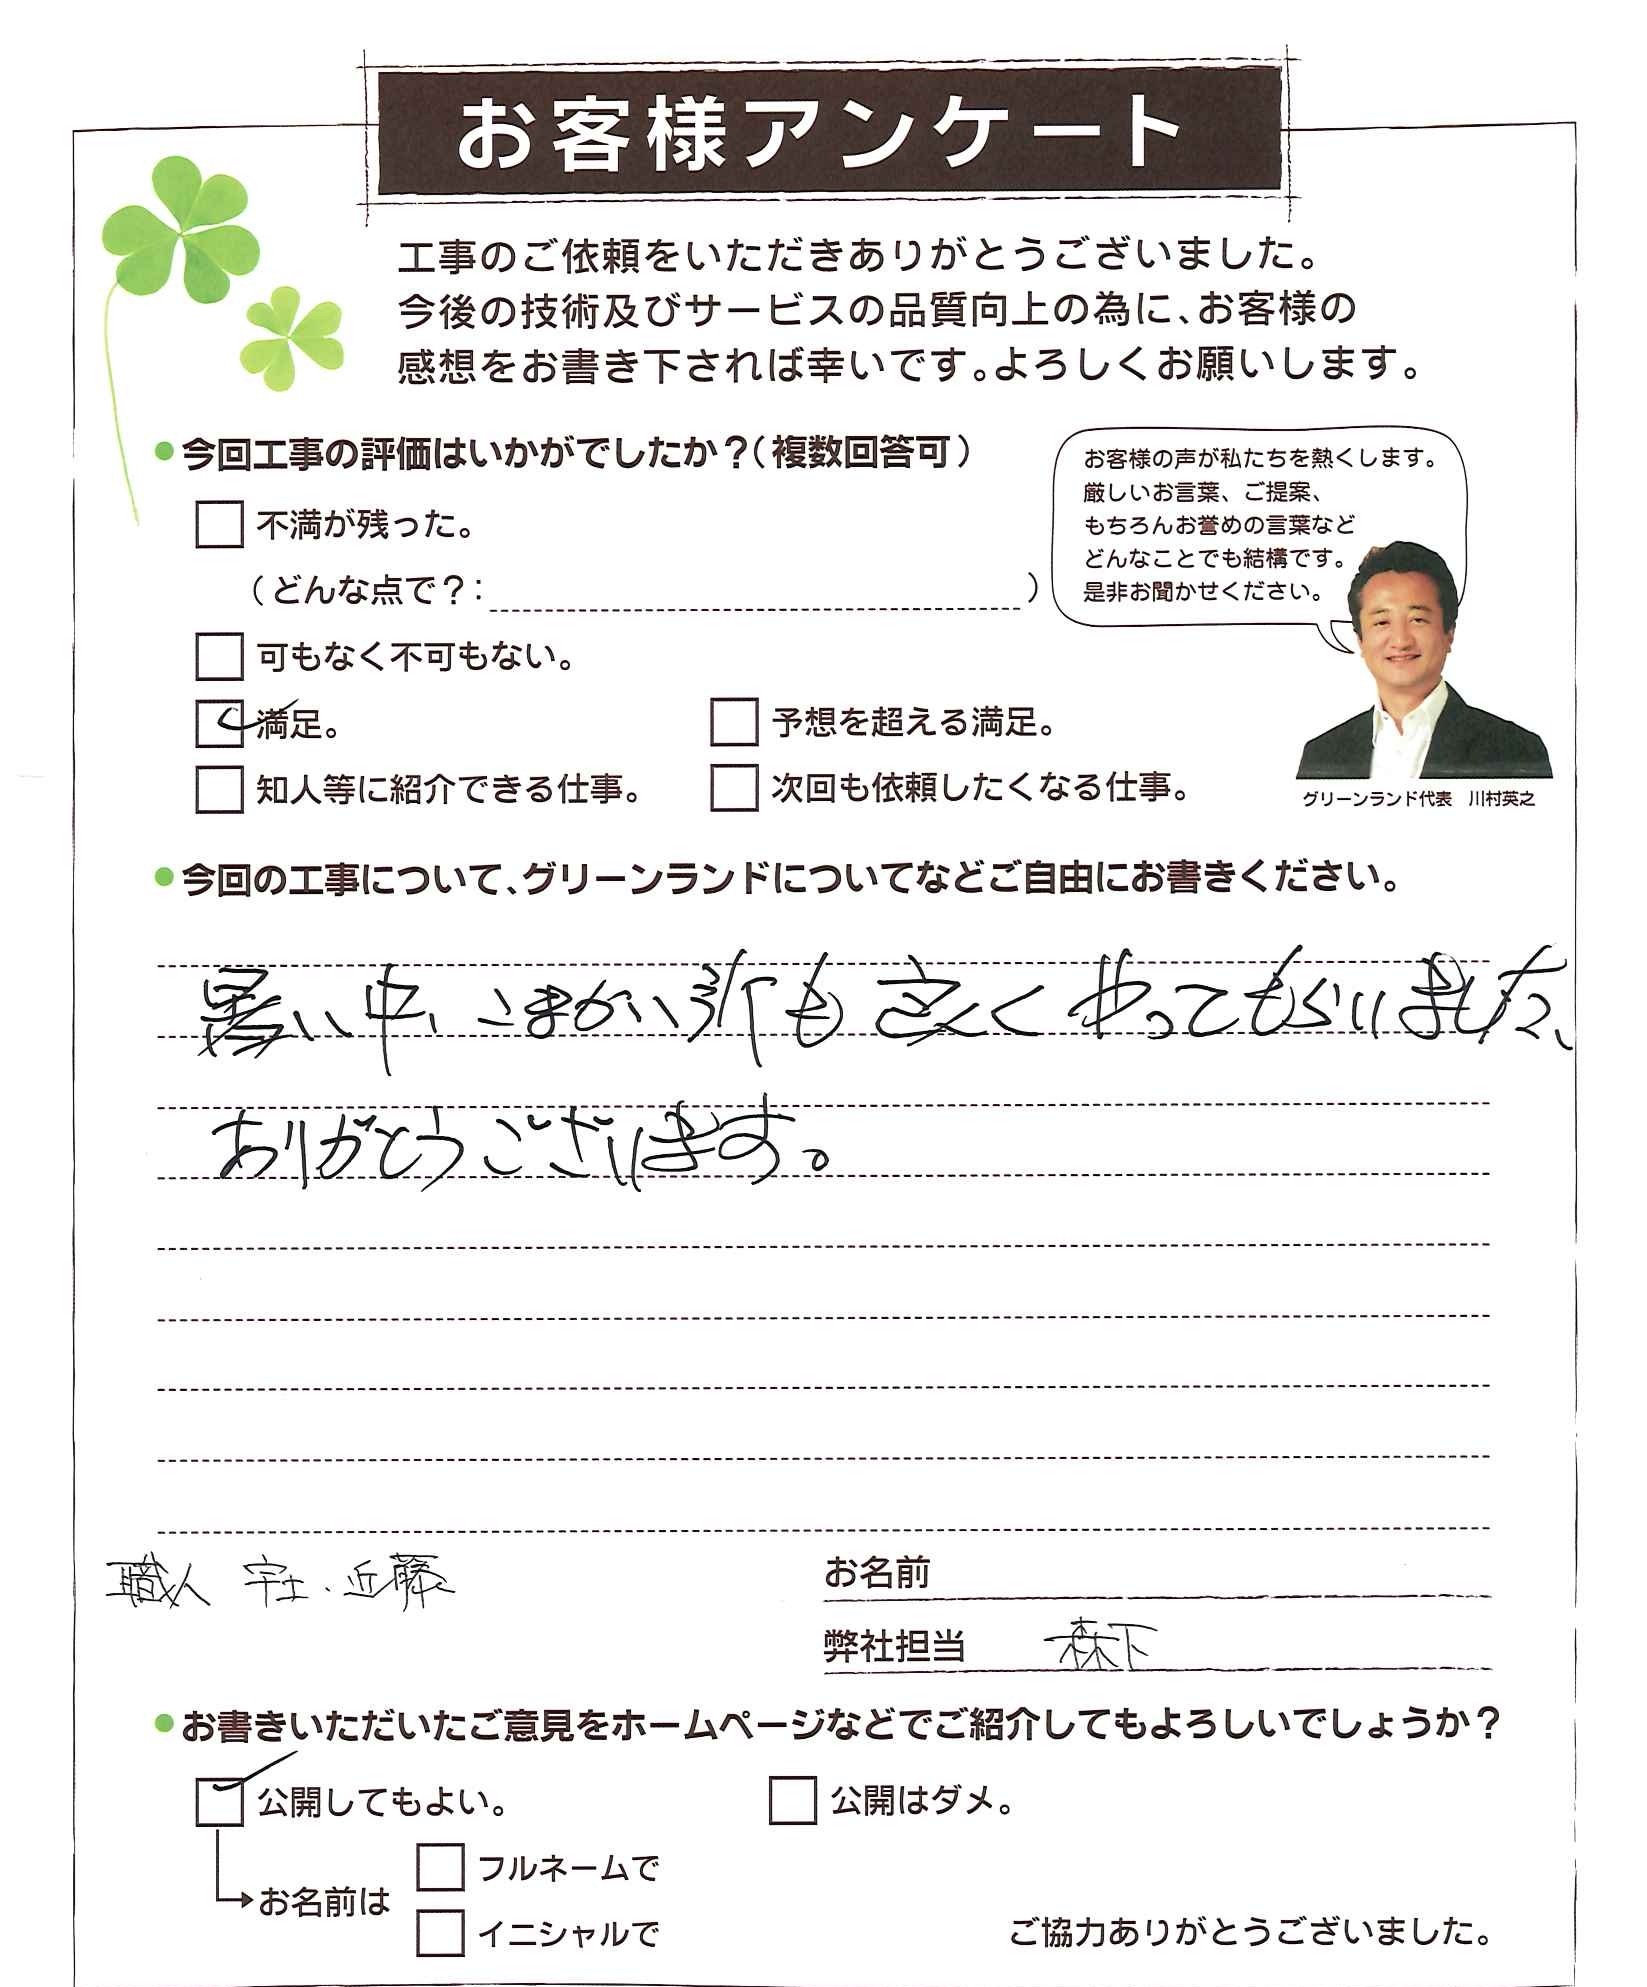 お客様アンケート
工事のご依頼をいただきありがとうございました。
今後の技術及びサービスの品質向上の為に、お客様の
感想をお書き下されば幸いです。よろしくお願いします。
●今回工事の評価はいかがでしたか？（複数回答可）
不満が残った。
（どんな点で？：　）
可もなく不可もない。
満足。
予想を超える満足。
知人等に紹介できる仕事。
次回も依頼したくなる仕事。
お客様の声が私たちを熱くします。
厳しいお言葉、ご提案、
もちろんお誉めの言葉など
どんなことでも結構です。
是非お聞かせください。
グリーンランド代表　川村英之
●今回の工事について、グリーンランドについてなどご自由にお書きください。
暑い中、こまかい所も良くやってもらいました、
ありがとうございます。
職人 宇土・近藤
お名前
弊社担当　森下
●お書きいただいたご意見をホームページなどでご紹介してもよろしいでしょうか？
公開してもよい。
公開はダメ。
お名前は
フルネームで
イニシャルで
ご協力ありがとうございました。